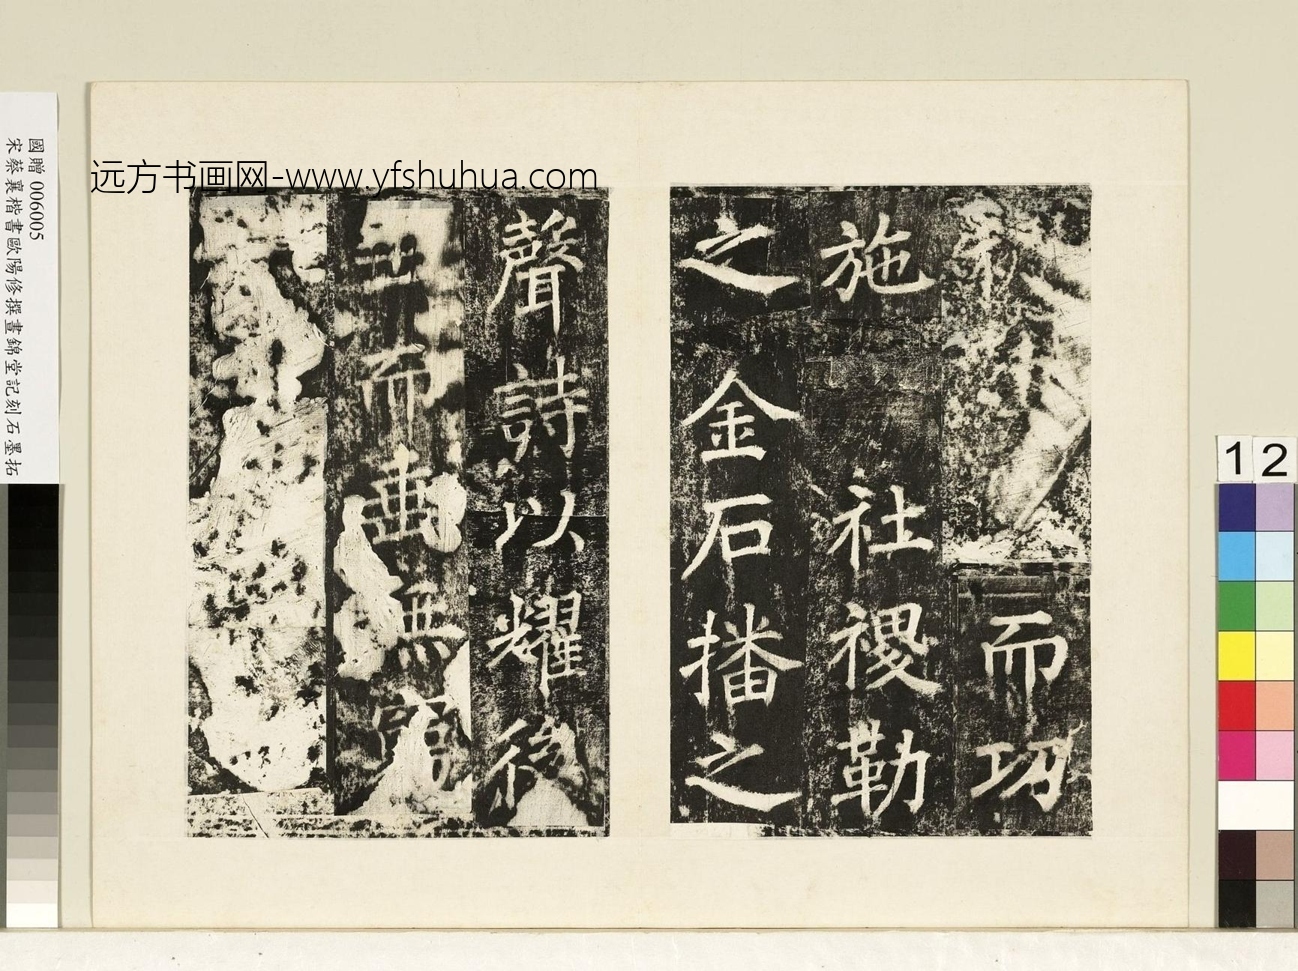 远方书画网-www.yfshuhua.com
國贈 006005
宋蔡襄楷書歐陽修撰晝錦堂記刻石墨拓
而功
施 社稷勒
之金石播之
聲詩以耀後
世而垂無窮
12